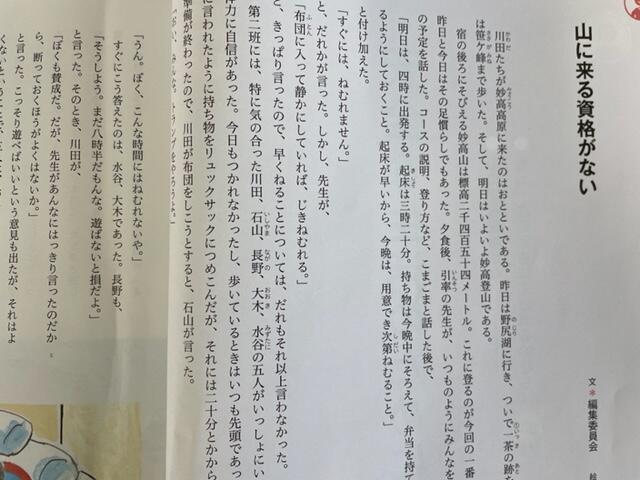 山に来る資格がない
文*編集委員会
川田たちが妙高高原に来たのはおとといである。昨日は野尻湖に行き、ついで一茶の跡を
は笹ケ峰まで歩いた。そして、明日はいよいよ妙高登山である。
宿の後ろにそびえる妙高山は標高二千四百五十四メートル。これに登るのが今回の一番
昨日と今日はその足慣らしでもあった。夕食後、引率の先生が、いつものようにみんなを
の予定を話した。コースの説明、登り方など、こまごまと話した後で、
「明日は、四時に出発する。起床は三時二十分。持ち物は今晩中にそろえて、弁当を持て
るようにしておくこと。起床が早いから、今晩は、用意でき次第ねむること。」
と付け加えた。
「すぐには、ねむれません。」
と、だれかが言った。しかし、先生が、
「布団に入って静かにしていれば、じきねむれる。」
と、きっぱり言ったので、早くねることについては、だれもそれ以上言わなかった。
第二班には、特に気の合った川田、石山、長野、大木、水谷の五人がいっしょにい
力に自信があった。今日もつかれなかったし、歩いているときはいつも先頭であっ
に言われたように持ち物をリュックサックにつめこんだが、それには二十分とかから
準備が終わったので、川田が布団をしこうとすると、石山が言った。
トランプをやろうよ。」
「うん。ぼく、こんな時間にはねむれないや。」
すぐにこう答えたのは、水谷、大木であった。長野も、
「そうしよう。まだ八時半だもんな。遊ばないと損だよ。」
と言った。そのとき、川田が、
「ぼくも賛成だ。だが、先生があんなにはっきり言ったのだか
ら、断っておくほうがよくはないか。」
と言った。こっそり遊べばいいという意見も出たが、それはよ
くないということで